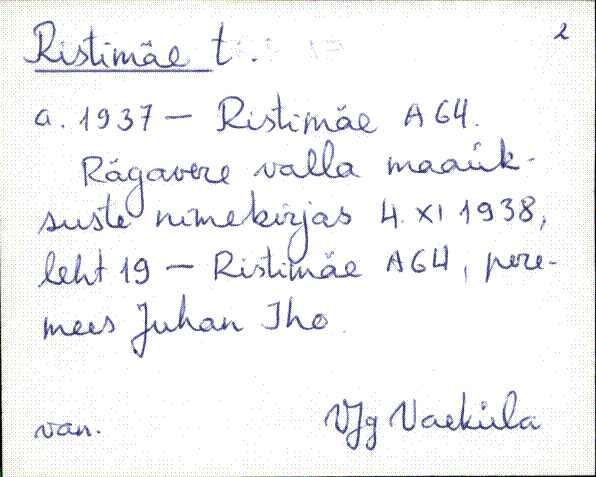 2
Ristimäe t.
a. 1937 — Ristimäe A64.
Rägavere valla maaük-
suste nimekirjas 4. XI 1938,
leht 19 — Ristimäe A64, pere-
mees Juhan Iho.
van. VJg Vaeküla